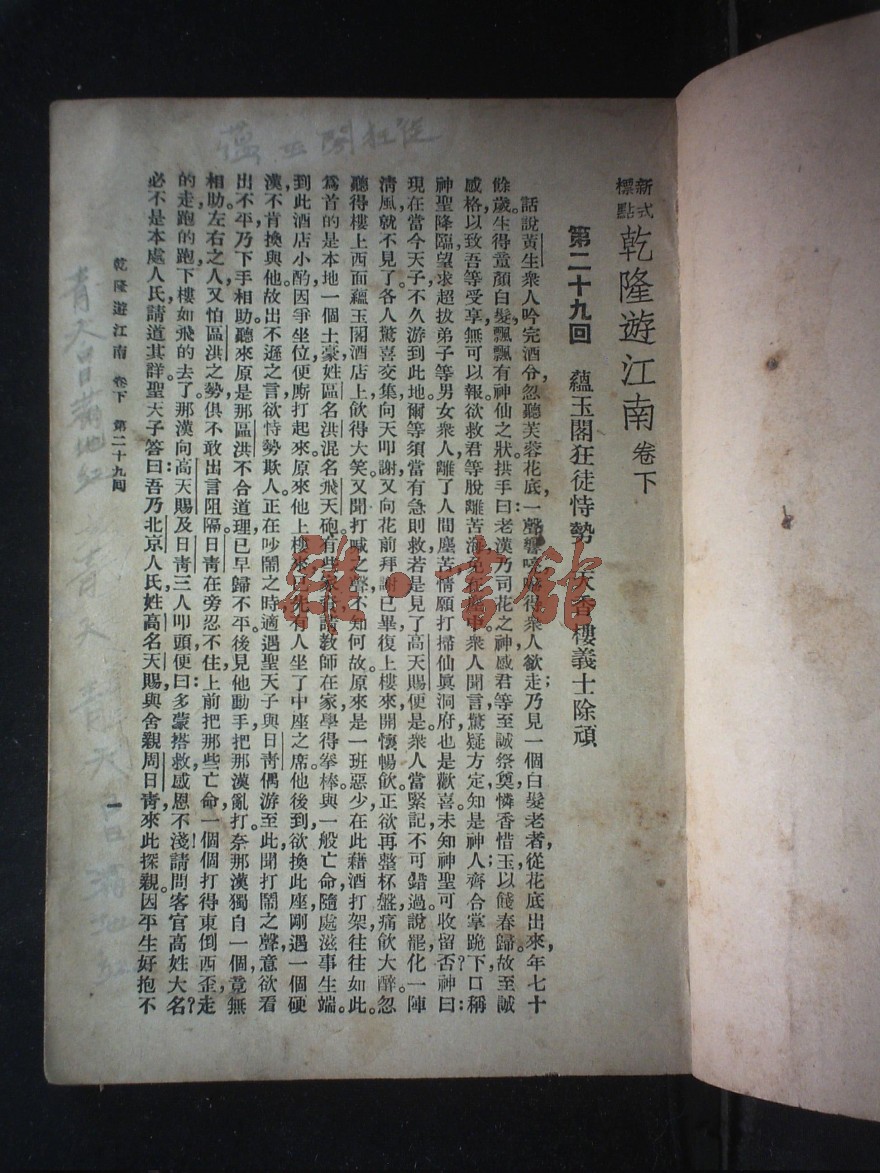 新式標點 乾隆遊江南 卷下
第二十九回 蘊玉閣狂徒恃勢 天香樓義士除頑
話說黃生衆人吟完酒分,忽聽芙蓉花底,一聲響喨,嚇得衆人欲走;乃見一個白髮老者,從花底出來,年七十
餘歲。生得童顏白髮,飄飄有神仙之狀,拱手曰:老漢乃司花之神,感君等至誠祭奠,憐香惜玉,以餞春歸。故至誠
感格,以致吾等受享,無可以報,欲救君等脫離苦海,免在塵中。衆人聞言,驚疑方定,知是神人;齊合掌跪下,口稱
神聖降臨,望求超拔弟子等男女衆人,離了人間塵苦,情願打掃仙眞洞府,也是歡喜。未知神聖可收留否?神曰:
現在當今天子,不久游到此地,爾等須當有急則救,若是見了高天賜便是。衆人當緊記,不可錯過。說罷,化一陣
清風,就不見了。各人驚喜交集,向天叩謝,又向花前拜謝已畢,復上樓來,開懷暢飲。正欲再整杯盤,痛飲大醉。忽
聽得樓上西面蘊玉閣酒店上,飲得大笑,又聞打喊之聲,不知何故。原來是一班惡少,在此藉酒打架,往往如此。
爲首的是本地一個土豪,姓區名洪,混名飛天砲,有些家資,請教師在家,學得拳棒,與一般亡命,隨處滋事生端。
到此酒店小酌,因爭坐位,便廝打起來。原來他上樓來,已先有人坐了中座之席。他後到,欲換此座,剛遇一個硬
漢,不肯換與他。故出不遜之言,欲恃勢欺人。正在吵鬧之時,適遇聖天子與日靑偶游至此,聞打鬧之聲,意欲看
出不平,乃下手相助。聽來原是那區洪不合道理,已早歸不平。後見他動手,把那漢亂打。奈那漢獨自一個,竟無
相助。左右之人,又怕區洪之勢,俱不敢出言阻隔。日靑在旁,忍不住,上前把那些亡命,一個個打得東倒西歪,走
的走,跑的跑,下樓如飛的去了。那漢向高天賜及日靑三人叩頭,便曰:多蒙搭救,感恩不淺!請問客官高姓大名?
必不是本處人氏,請道其詳。聖天子答曰:吾乃北京人氏,姓高名天賜,與舍親周日靑,來此探親。因平生好抱不
乾隆遊江南 卷下 第二十九囘
一
雅·書館